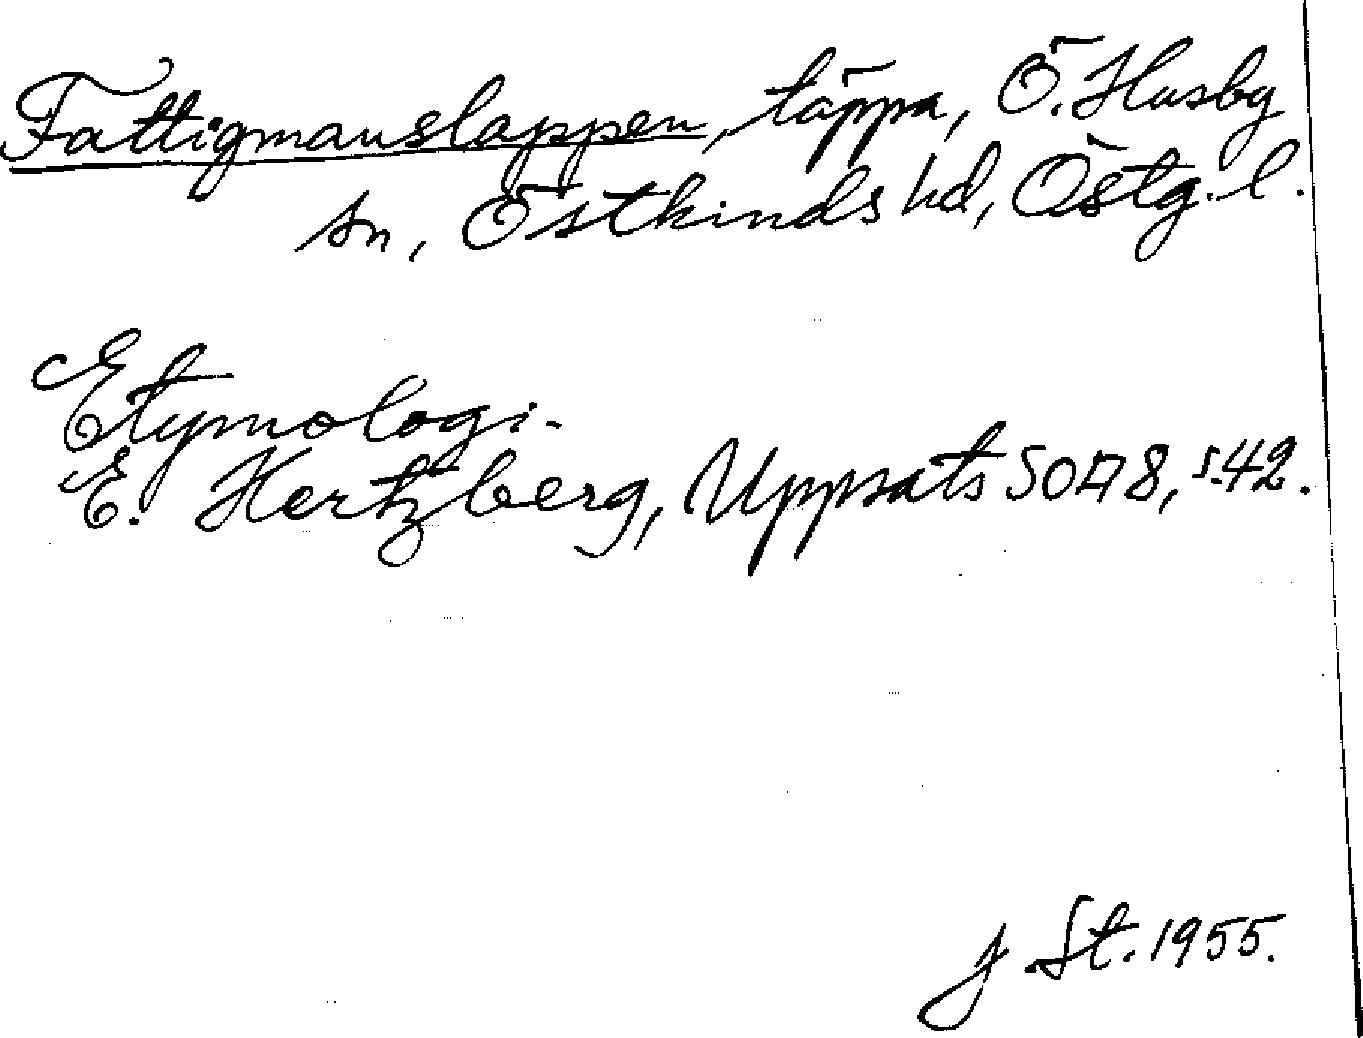 Fattigmanslappen, täppa, Ö. Husby
sn, Östkinds hd, Östg. l.
Etymologi.
E. Hertzberg, Uppsats SOÄ 8, s. 42.
J St. 1955.